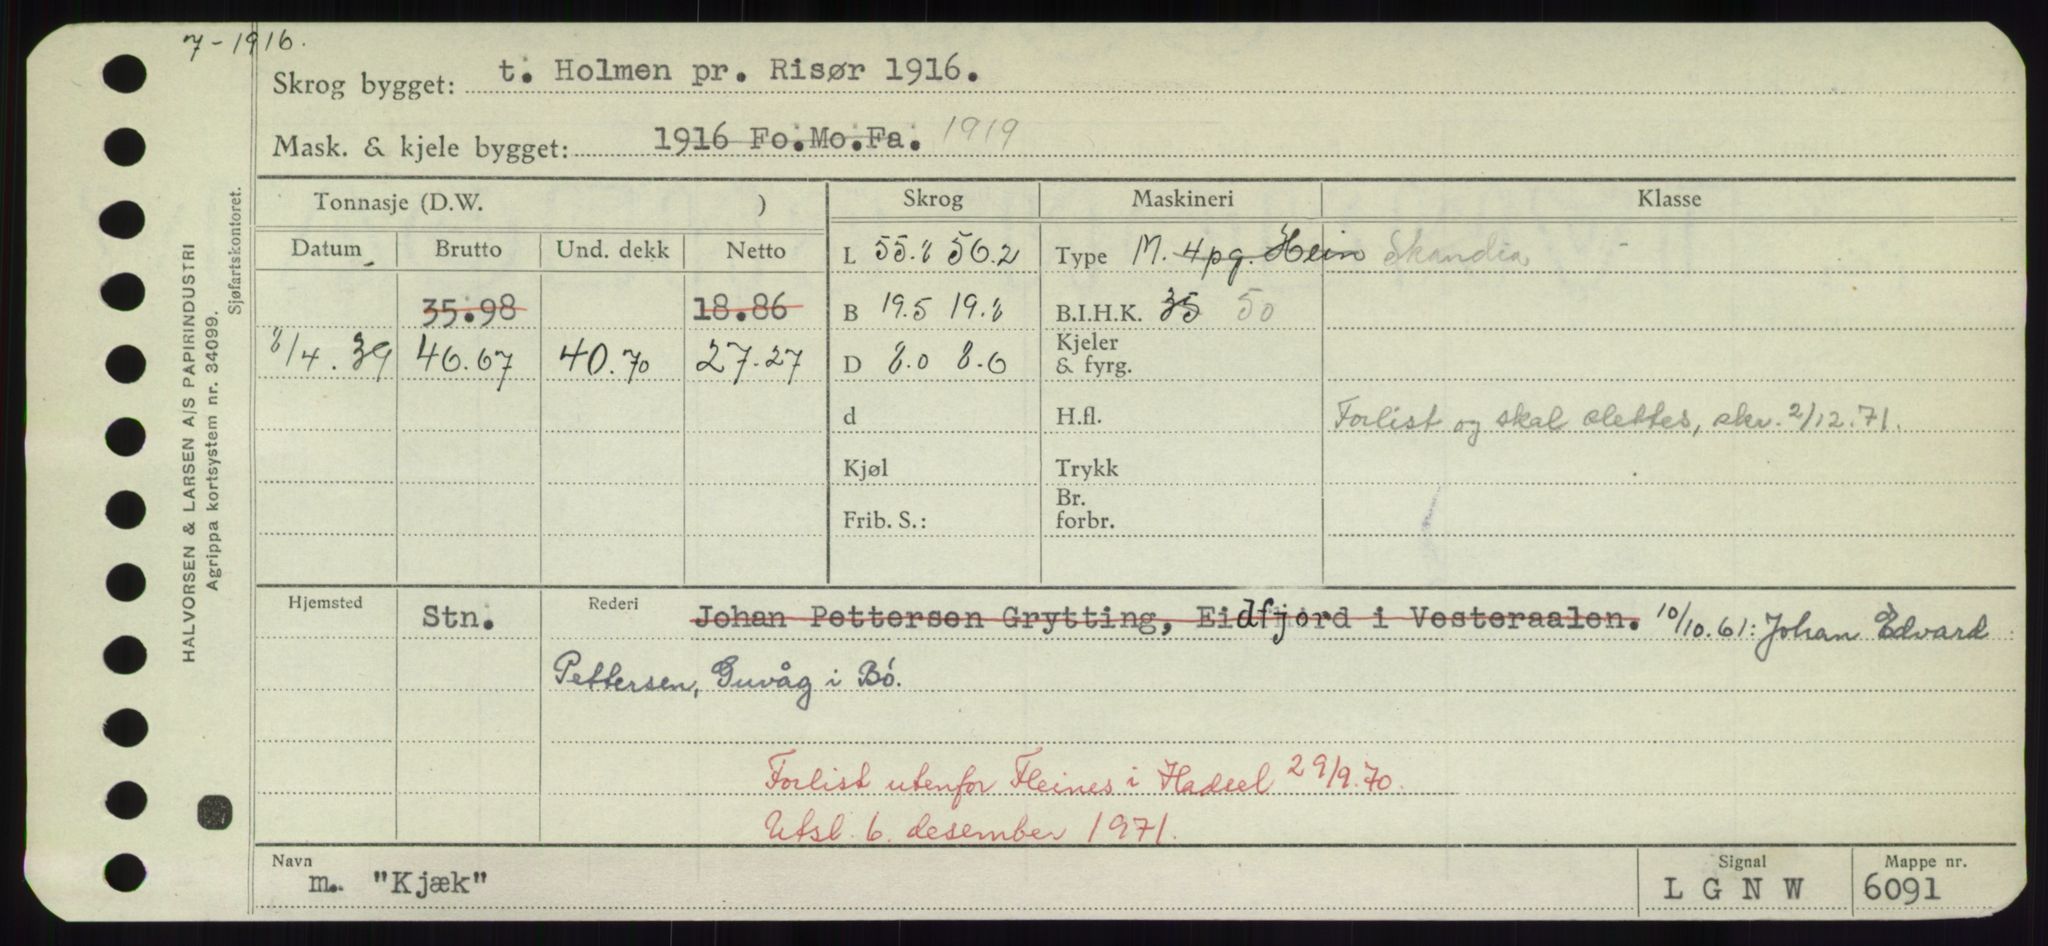 7-1916.
Skrog bygget: t. Holmen pr. Risør 1916.
Mask. & kjele bygget: 1916 Fo.Mo.Fa. 1919
Tonnasje (D.W. ) Skrog Maskineri Klasse
Datum Brutto Und. dekk Netto L 55.8 56.2 Type M. 4pg. Hein Skandia
35.98 18.86 B 19.5 19.8 B.I.H.K. 35 50
8/4.39 46.67 40.70 27.27 D 8.0 8.0 Kjeler & fyrg.
d H.fl. Forlist og skal slettes, skr. 2/12.71.
Kjøl Trykk
Frib. S.: Br. forbr.
Hjemsted Stn. Rederi Johan Pettersen Grytting, Eidfjord i Vesteraalen. 10/10.61: Johan Edvard
Pettersen, Guvåg i Bó.
Forlist utenfor Fleines i Hadsel 29/9.70.
Utsl. 6. desember 1971.
Navn m. "Kjæk" Signal L G N W Mappe nr. 6091
HALVORSEN & LARSEN A/S PAPIRINDUSTRI
Agrippa kortsystem nr. 34099.
Sjøfartskontoret.